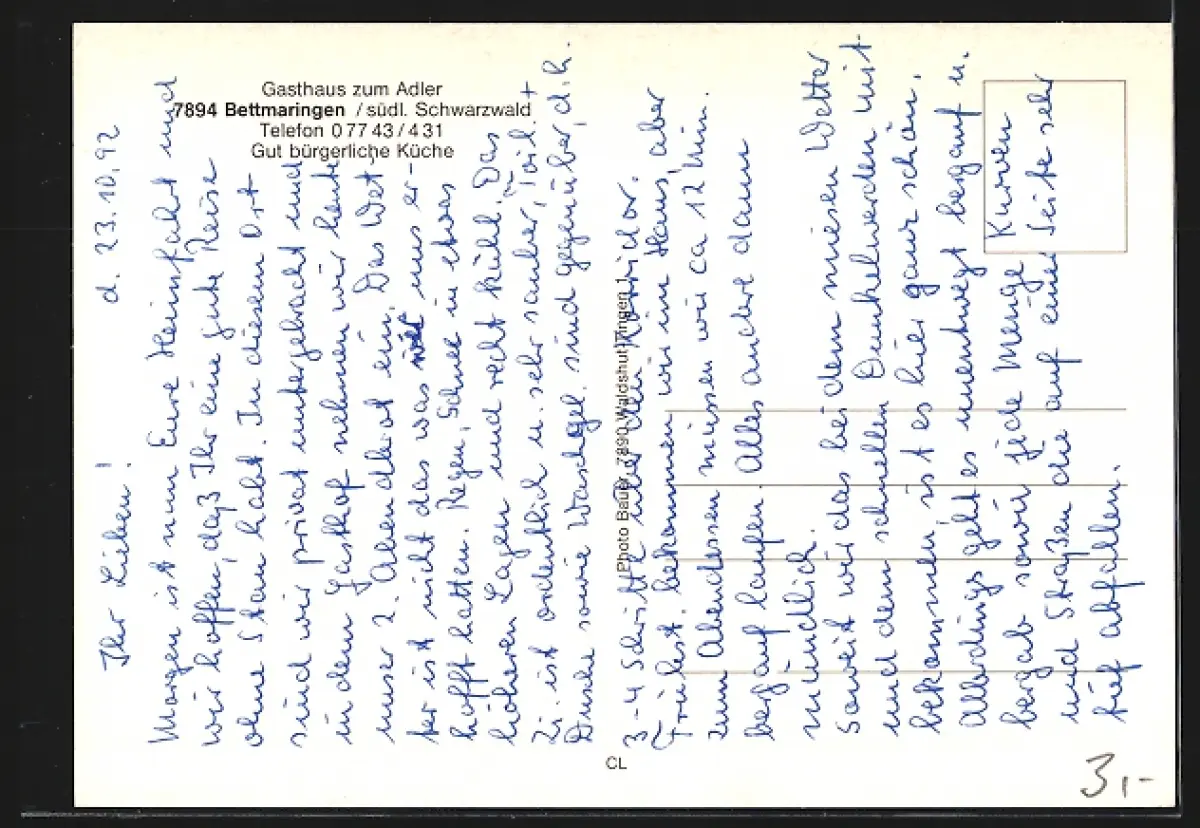 Gasthaus zum Adler
7894 Bettmaringen / südl. Schwarzwald
Telefon 0 77 43 / 4 31
Gut bürgerliche Küche
d. 23.10.92
Ihr Lieben!
Morgen ist nun Eure Heimfahrt und
wir hoffen, daß Ihr eine gute Reise
ohne Stau habt. In diesem Ort
sind wir privat untergebracht und
in dem Gasthof nehmen wir heute
unser 2. Abendbrot ein. Das Wet-
ter ist nicht das was wir uns er-
hofft hatten. Regen, Schnee in etwas
höheren Lagen und recht kühl. Das
Zi. ist ordentlich u. sehr sauber, Toil. +
Dusche sowie Waschgel. sind gegenüber, d.h.
3-4 Schritte über den Korridor.
Frühst. bekommen wir im Haus, aber
zum Abendessen müssen wir ca 12 Min.
bergauf laufen. Alles andere dann
mündlich.
Soweit wir das bei dem miesen Wetter
und dem schnellen Dunkelwerden mit-
bekommen, ist es hier ganz schön.
Allerdings geht es unentwegt bergauf u.
bergab sowie jede Menge Kurven
und Straßen die auf einer Seite sehr
tief abfallen.
Photo Bauer, 7890 Waldshut-Tiengen 1
CL
3,-